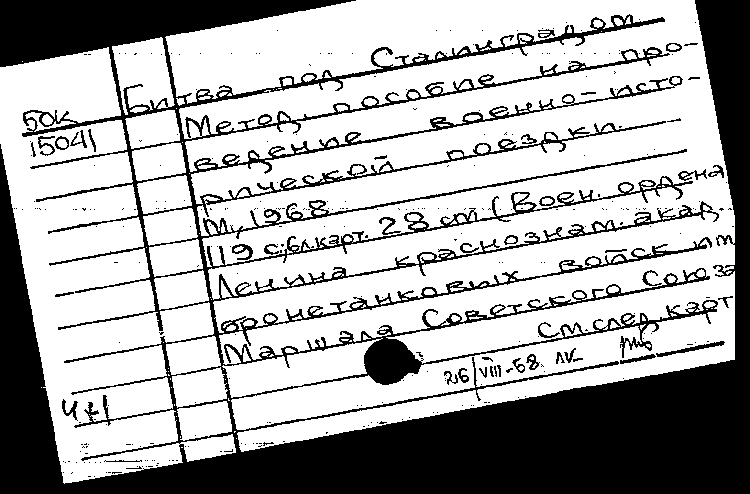 Битва под Сталинградом
50К
15041
Метод. пособие на про-
ведение военно-исто-
рической поездки.
М., 1968
119 с; 6л.карт. 28 см (Воен. ордена
Ленина краснознам. акад.
бронетанковых войск им
Маршала Советского Союза
См.след.карт
26/VIII-68 ЛК